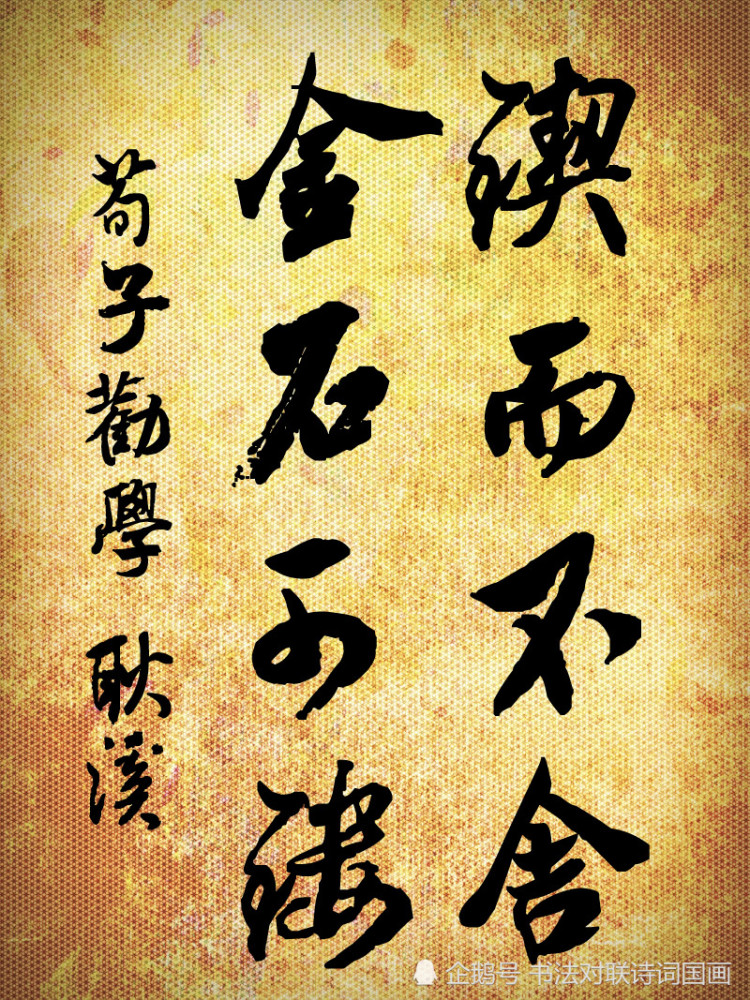 鍥而不舍
金石可鏤
荀子勸學 耿溪
企鹅号 书法对联诗词国画